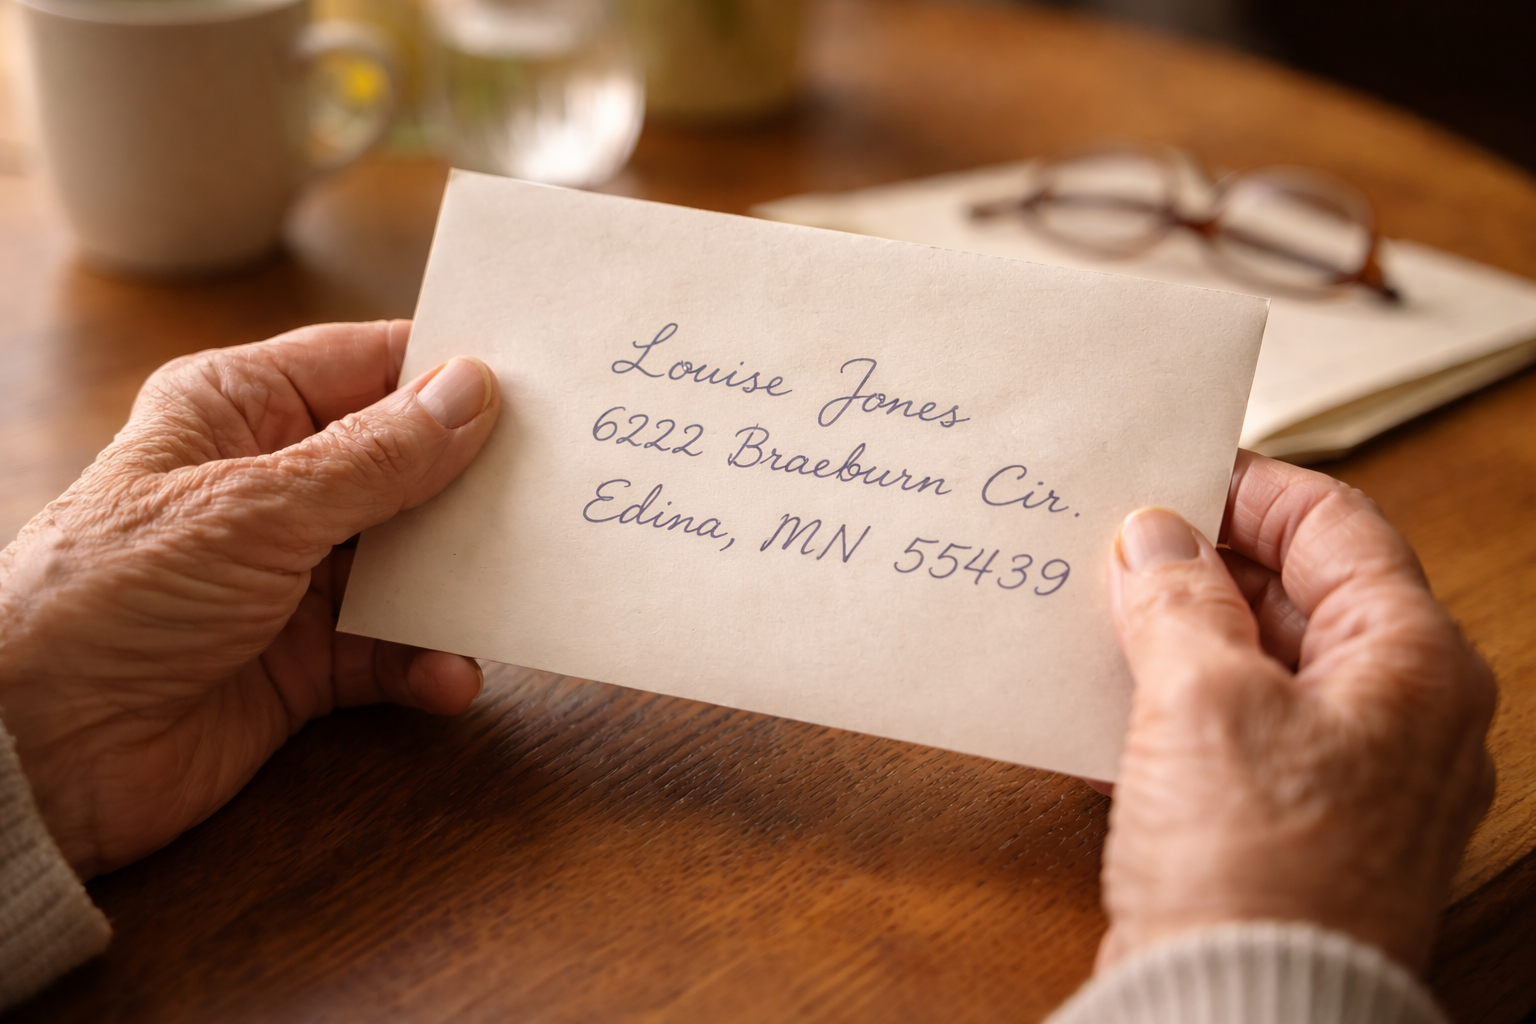 Louise Jones
6222 Braeburn Cir.
Edina, MN 55439